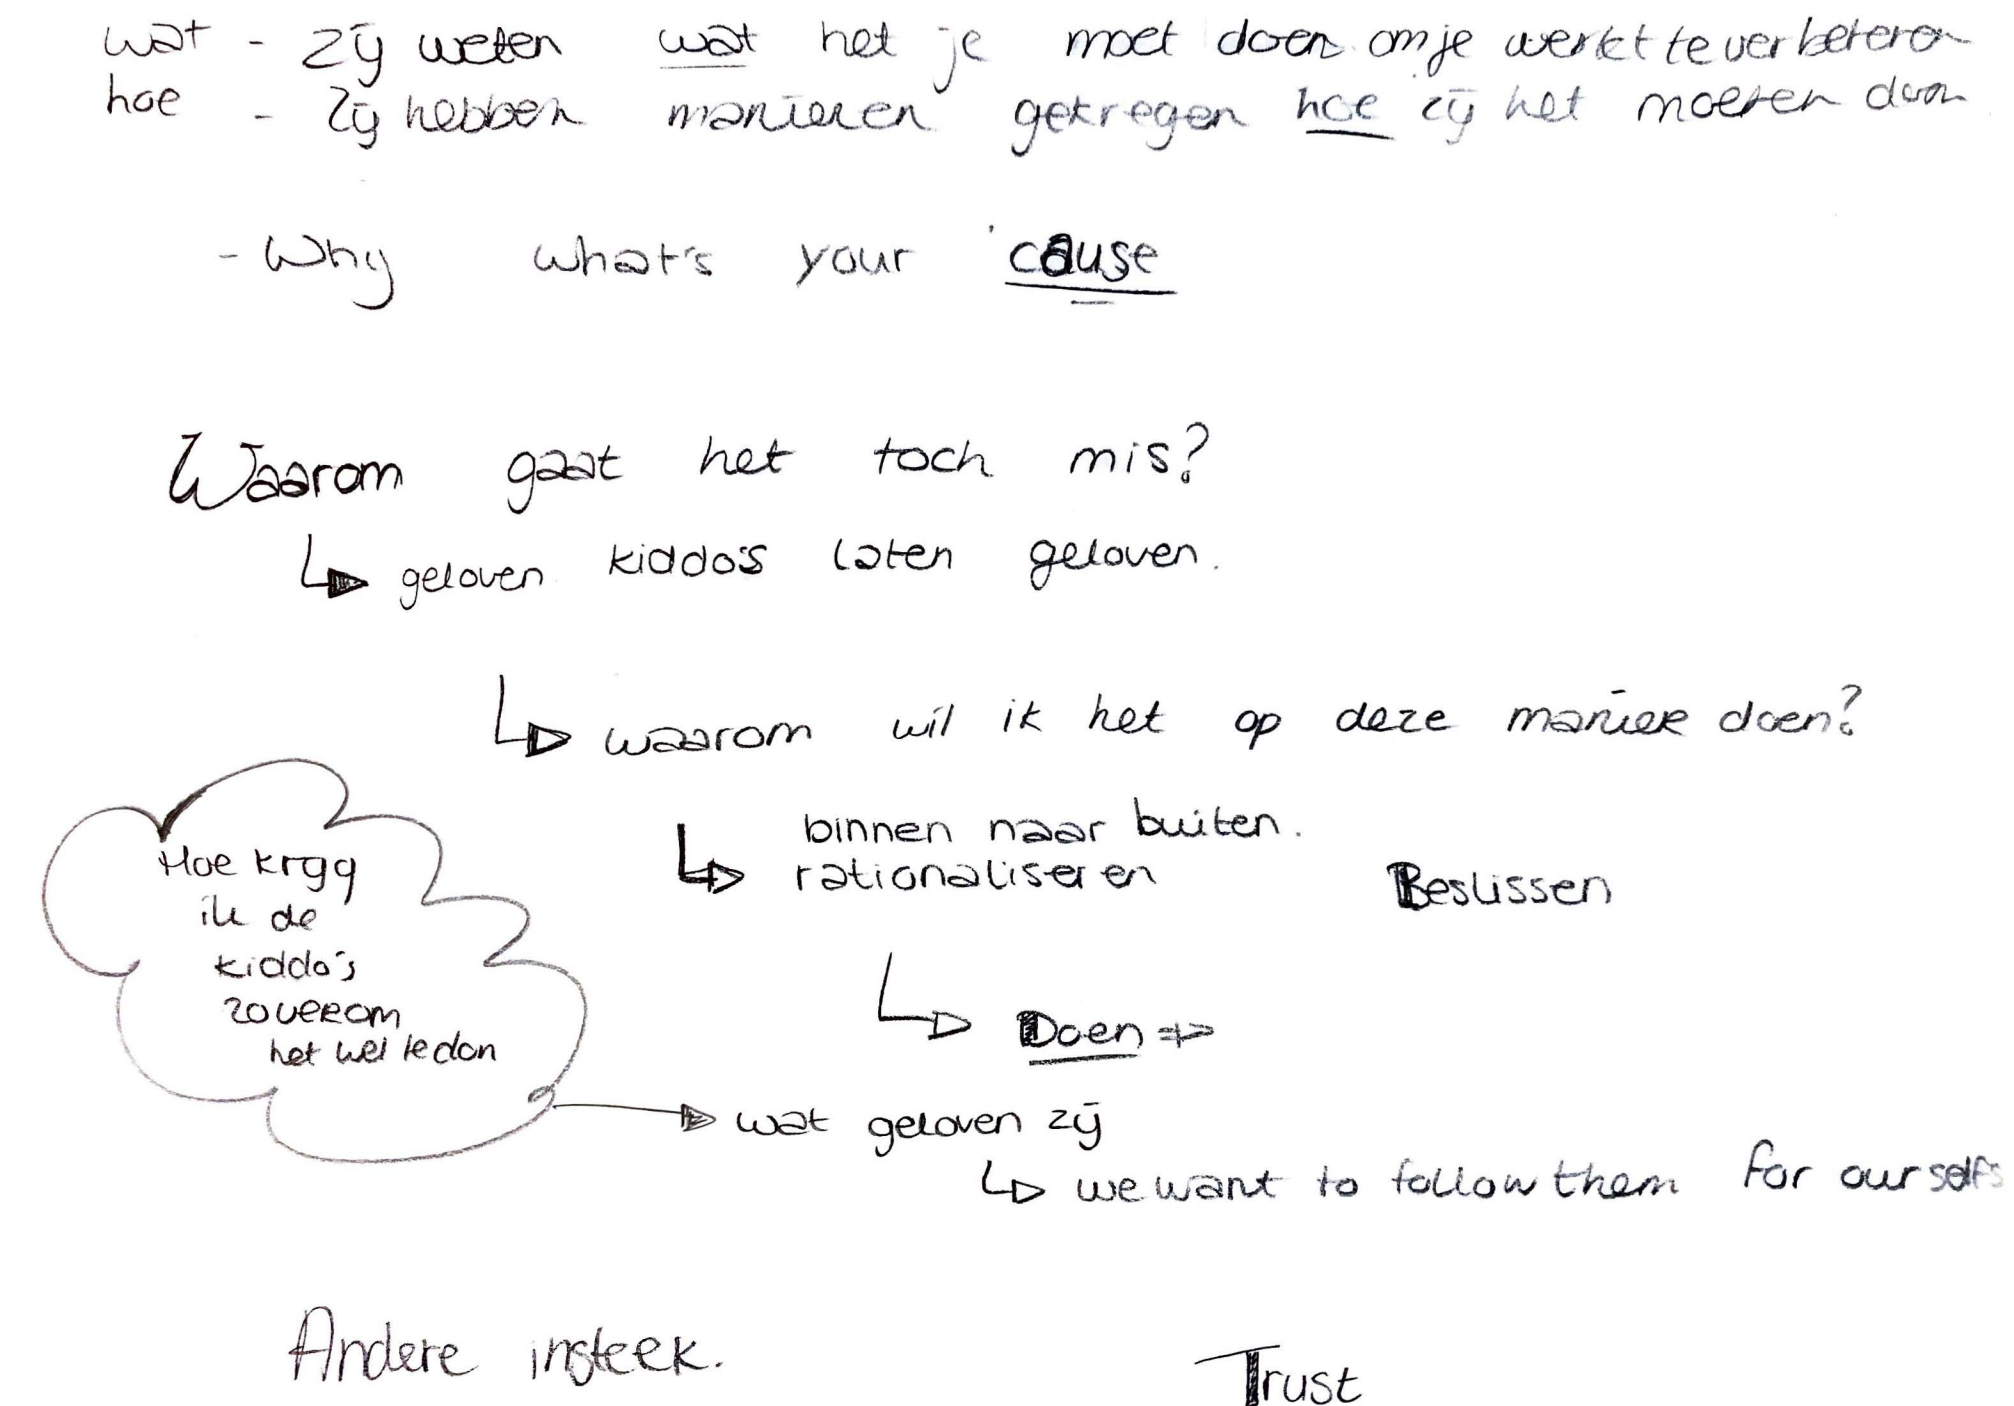 wat - zij weten wat het je moet doen om je werkt te verbeteren
hoe - zij hebben manieren gekregen hoe zij het moeten doen
- Why what's your 'cause
Waarom gaat het toch mis?
geloven kiddo's laten geloven.
waarom wil ik het op deze manier doen?
binnen naar buiten.
rationaliseren Beslissen
Hoe krijg
ik de
kiddo's
zover om
het wel te doen
Doen =>
wat geloven zij
we want to follow them for our selfs
Andere insteek.
Trust